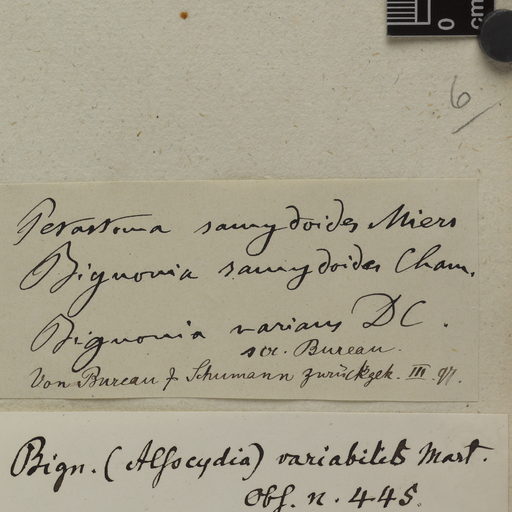 0 cm
6
Petastoma samydoides Miers
Bignonia samydoides Cham.
Bignonia varians DC.
scr. Bureau.
Von Bureau & Schumann zurückgek. III. 97.
Bign. (Alsocydia) variabilis Mart.
Obs. n. 445.